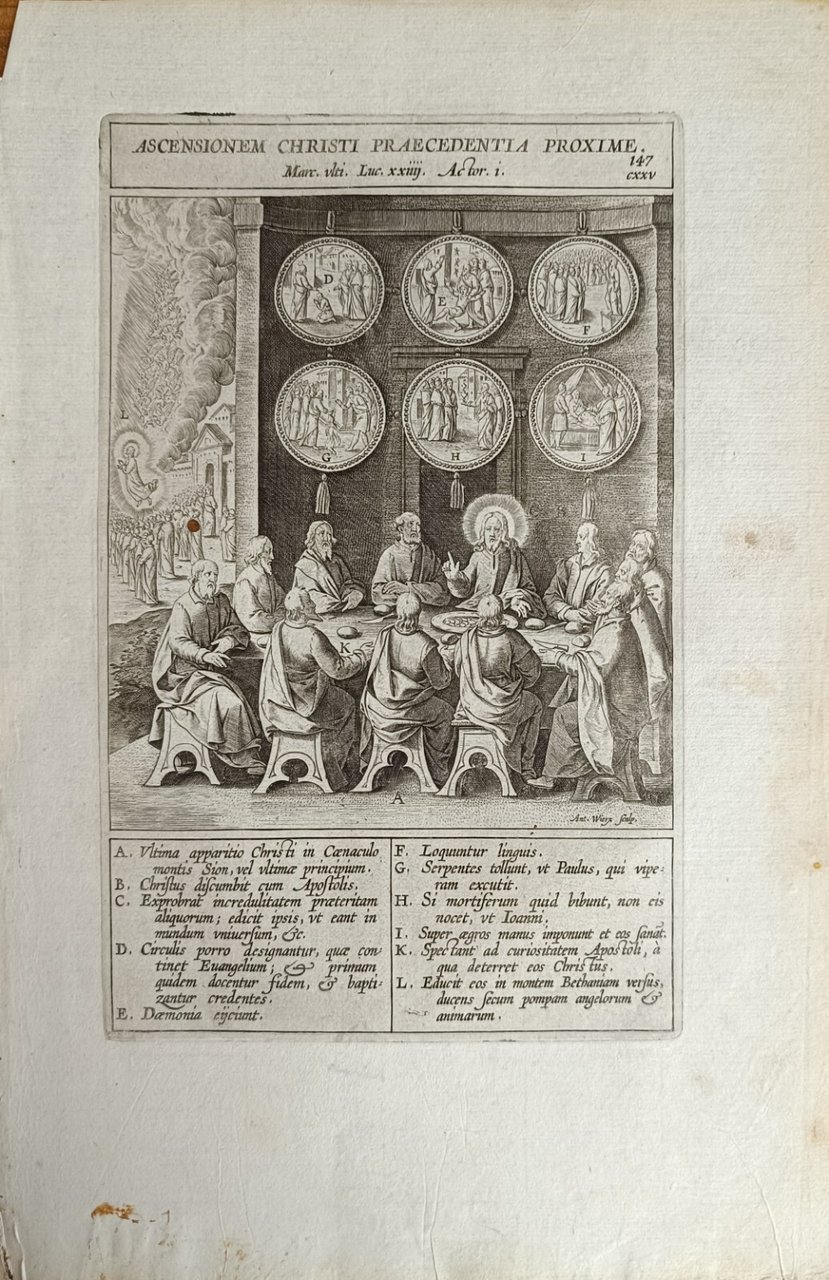 ASCENSIONEM CHRISTI PRAECEDENTIA PROXIME.
Marc. vlti. Luc. xxiiij. Actor. i.
147
cxxv
D
E
F
G
H
I
L
K
A
Ant. Wierx sculp.
A. Vltima apparitio Christi in Cœnaculo
montis Sion, vel vltimæ principium.
B. Christus discumbit cum Apostolis.
C. Exprobrat incredulitatem præteritam
aliquorum; edicit ipsis, vt eant in
mundum vniuersum, &c.
D. Circulis porro designantur, quæ con-
tinet Euangelium; & primum
quidem docentur fidem, & bapti-
zantur credentes.
E. Dæmonia eijciunt.
F. Loquuntur linguis.
G. Serpentes tollunt, vt Paulus, qui vipe-
ram excutit.
H. Si mortiferum quid bibunt, non eis
nocet, vt Ioanni.
I. Super ægros manus imponunt et eos sanāt.
K. Spectant ad curiositatem Apostoli, à
qua deterret eos Christus.
L. Educit eos in montem Bethaniam versus,
ducens secum pompam angelorum &
animarum.